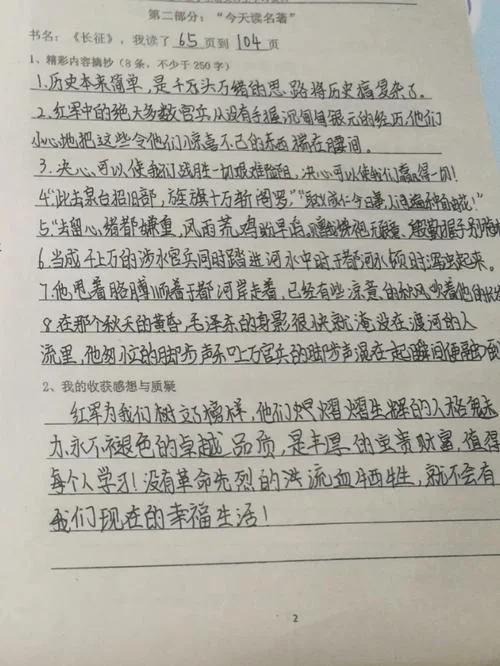 第二部分：“今天读名著”
书名：《长征》，我读了 65 页到 104 页
1、精彩内容摘抄（8条，不少于250字）
1.历史本来简单，是千万头万绪的思路将历史搞复杂了。
2.红军中的绝大多数官兵从没有手握沉甸甸银元的经历，他们
小心地把这些令他们惊喜不已的东西揣在腰间。
3.决心可以使我们战胜一切艰难险阻，决心可以使我们赢得一切！
4.“此去泉台招旧部，旌旗十万斩阎罗。”
5.“去留心绪都嫌重，风雨荒鸡盼早
6.当成千上万的涉水官兵同时踏进河水中时于都河水顿时泻
起来。
7.他甩着胳膊顺着于都河岸走着，已经有些凉意的秋风吹着他的
8.在那个秋天的黄昏，毛泽东的身影很快就淹没在渡河的人
流里，他匆匆的脚步声和上万官兵的脚步声混在一起瞬间便融
2、我的收获感想与质疑
红军为我们树立了榜样，他们熠熠生辉的人格魅
力、永不褪色的卓越品质，是丰厚的宝贵财富，值得
每个人学习！没有革命先烈的洪流血牺牲，就不会有
我们现在的幸福生活！
2